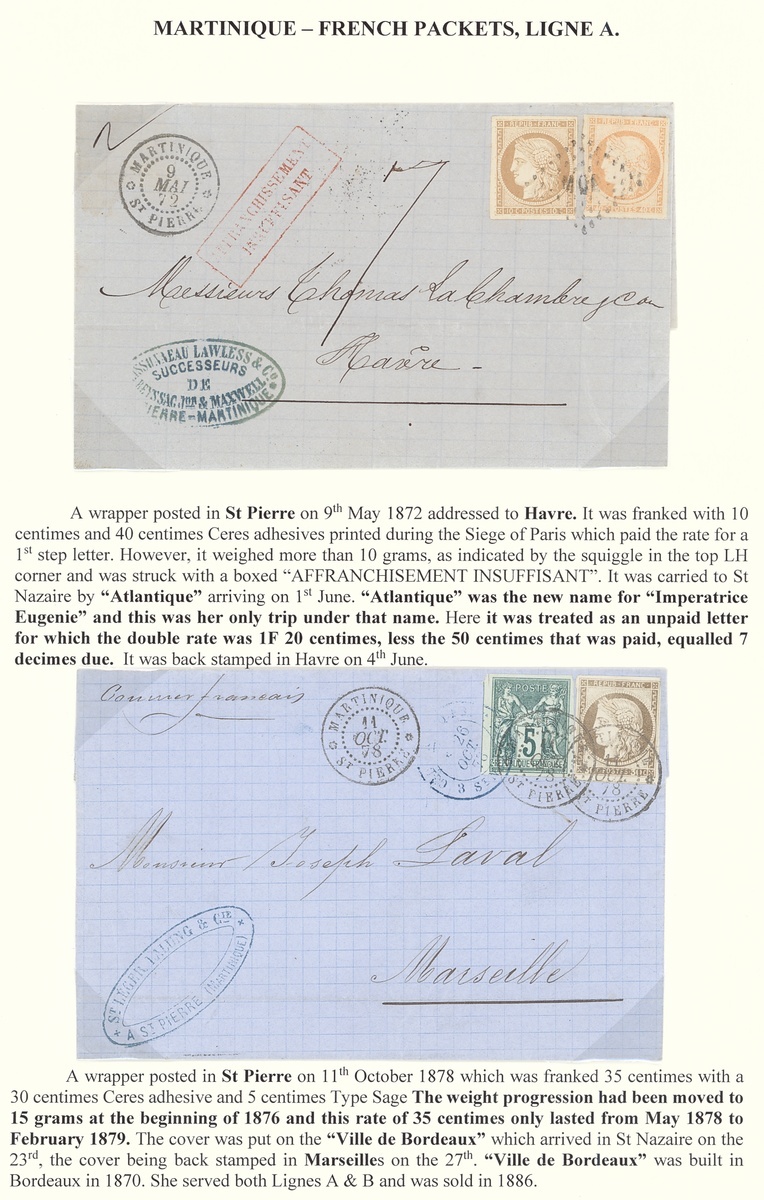 MARTINIQUE – FRENCH PACKETS, LIGNE A.
MARTINIQUE
9
MAI
72
ST PIERRE
AFFRANCHISSEMENT
INSUFFISANT
REPUB FRANC
10 C POSTES 10 C
REPUB FRANC
7
Messieurs Thomas La Chambre & Co
Havre -
LAWLESS & Co
SUCCESSEURS
DE
& MAXWELL
PIERRE-MARTINIQUE
A wrapper posted in St Pierre on 9th May 1872 addressed to Havre. It was franked with 10
centimes and 40 centimes Ceres adhesives printed during the Siege of Paris which paid the rate for a
1st step letter. However, it weighed more than 10 grams, as indicated by the squiggle in the top LH
corner and was struck with a boxed “AFFRANCHISEMENT INSUFFISANT”. It was carried to St
Nazaire by “Atlantique” arriving on 1st June. “Atlantique” was the new name for “Imperatrice
Eugenie” and this was her only trip under that name. Here it was treated as an unpaid letter
for which the double rate was 1F 20 centimes, less the 50 centimes that was paid, equalled 7
decimes due. It was back stamped in Havre on 4th June.
Courrier francais
MARTINIQUE
11
OCT.
78
ST PIERRE
26
OCT
POSTE
5
REPUB FRANC
ST PIERRE
78
11
OCT
78
ST PIERRE
Monsieur Joseph Laval
Marseille
ST LÉGER, LALUNG & CIE
A ST PIERRE (MARTINIQUE)
A wrapper posted in St Pierre on 11th October 1878 which was franked 35 centimes with a
30 centimes Ceres adhesive and 5 centimes Type Sage The weight progression had been moved to
15 grams at the beginning of 1876 and this rate of 35 centimes only lasted from May 1878 to
February 1879. The cover was put on the “Ville de Bordeaux” which arrived in St Nazaire on the
23rd, the cover being back stamped in Marseilles on the 27th. “Ville de Bordeaux” was built in
Bordeaux in 1870. She served both Lignes A & B and was sold in 1886.